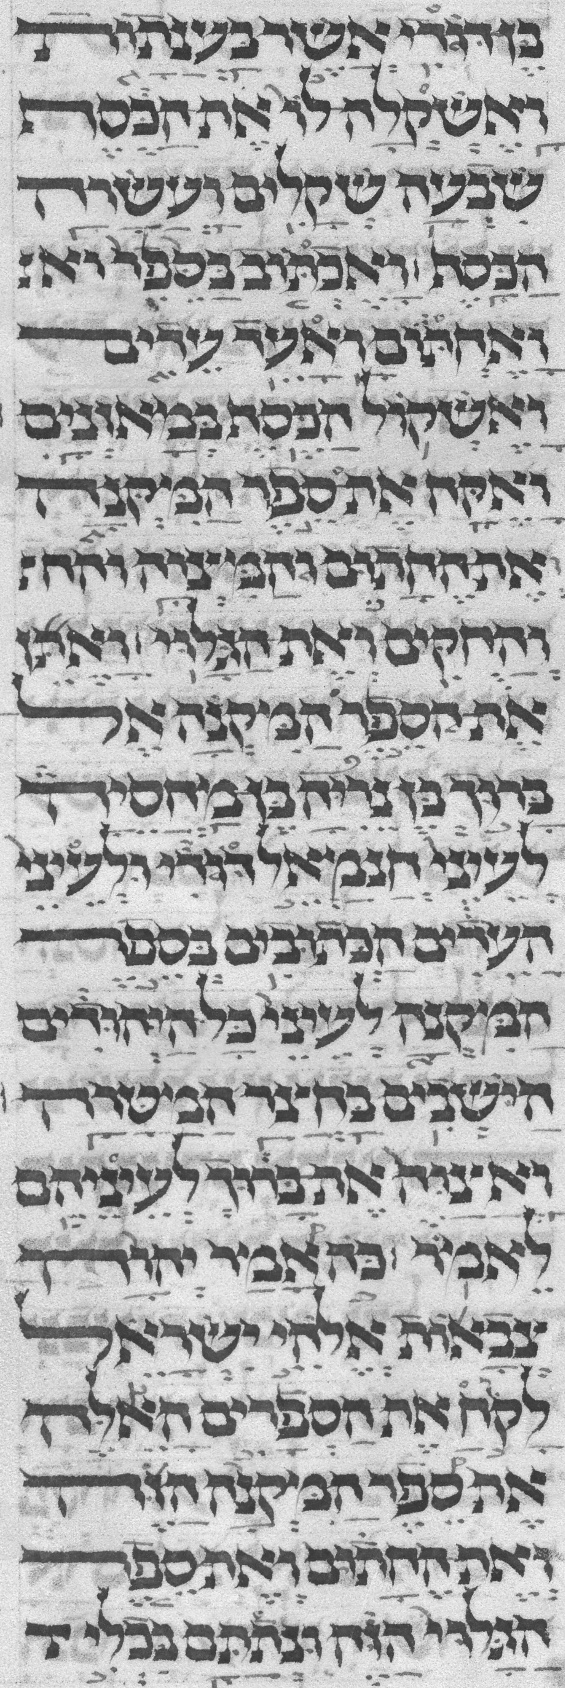 בן דודי אשר בענתות
ואשקלה לו את הכסף
שבעה שקלים ועשרה
הכסף ואכתוב בספר וא
ואחתום ואעד עדים
ואשקול הכסף במאזנים
ואקח את ספר המקנה
את החתום והמצוה והח
והחקים ואת הגלוי ואתן
את הספר המקנה אל
ברוך בן נריה בן מחסיה
לעיני חנמאל דודי ולעיני
העדים הכתובים בספר
המקנה לעיני כל היהודים
הישבים בחצר המטרה
ואצוה את ברוך לעיניהם
לאמר כה אמר יהוה
צבאות אלהי ישראל
לקח את הספרים האלה
את ספר המקנה הזה
ואת החתום ואת ספר
הגלוי הזה ונתתם בכלי